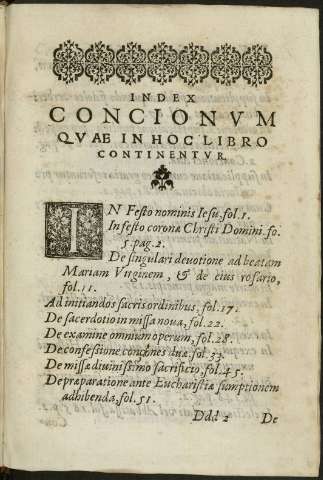 INDEX
CONCIONVM
QVAE IN HOC LIBRO
CONTINENTVR.
IN Festo nominis Iesu, fol. 1.
In festo coronæ Christi Domini. fo.
5. pag. 2.
De singulari deuotione ad beatam
Mariam Virginem, & de eius rosario,
fol. 11.
Ad initiandos sacris ordinibus, fol. 17.
De sacerdotio in missa noua, fol. 22.
De examine omnium operum, fol. 28.
De confessione conciones duæ. fol. 33.
De missæ diuinissimo sacrificio, fol. 45.
De præparatione ante Eucharistiæ sumptionem
adhibenda, fol. 51.
Ddd 2 De